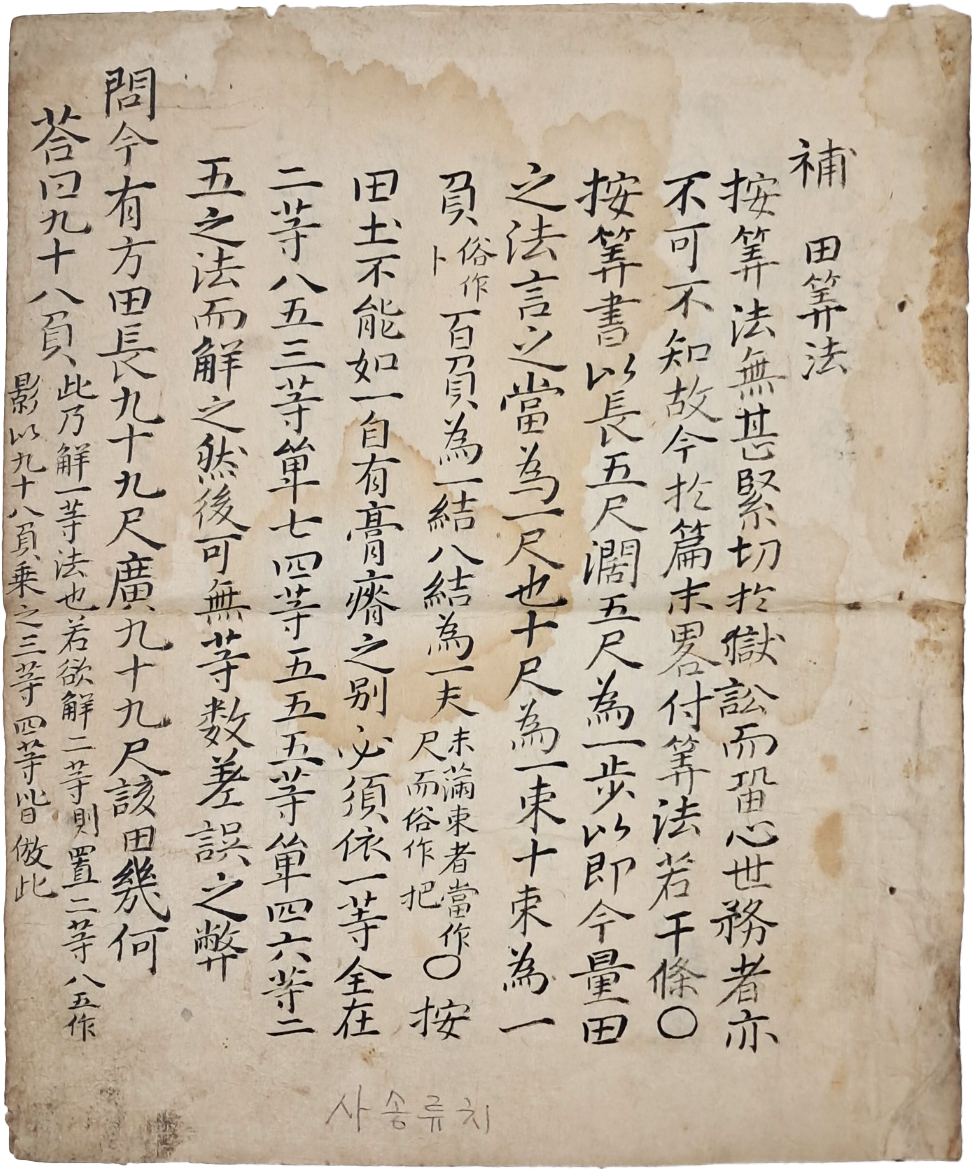 補 田筭法
按筭法無甚緊切於獄訟而留心世務者亦
不可不知故今於篇末畧付筭法若干條〇
按筭書以長五尺濶五尺為一步以即今量田
之法言之當為一尺也十尺為一束十束為一
負俗作卜百負為一結八結為一夫未滿束者當作尺而俗作把〇按
田土不能如一自有膏瘠之别必須依一等全在
二等八五三等單七四等五五五等單四六等二
五之法而解之然後可無等数差誤之弊
問今有方田長九十九尺廣九十九尺該田幾何
荅曰九十八負此乃解一等法也若欲解二等則置二等八五作
影以九十八負乗之三等四等皆倣此
사송류치